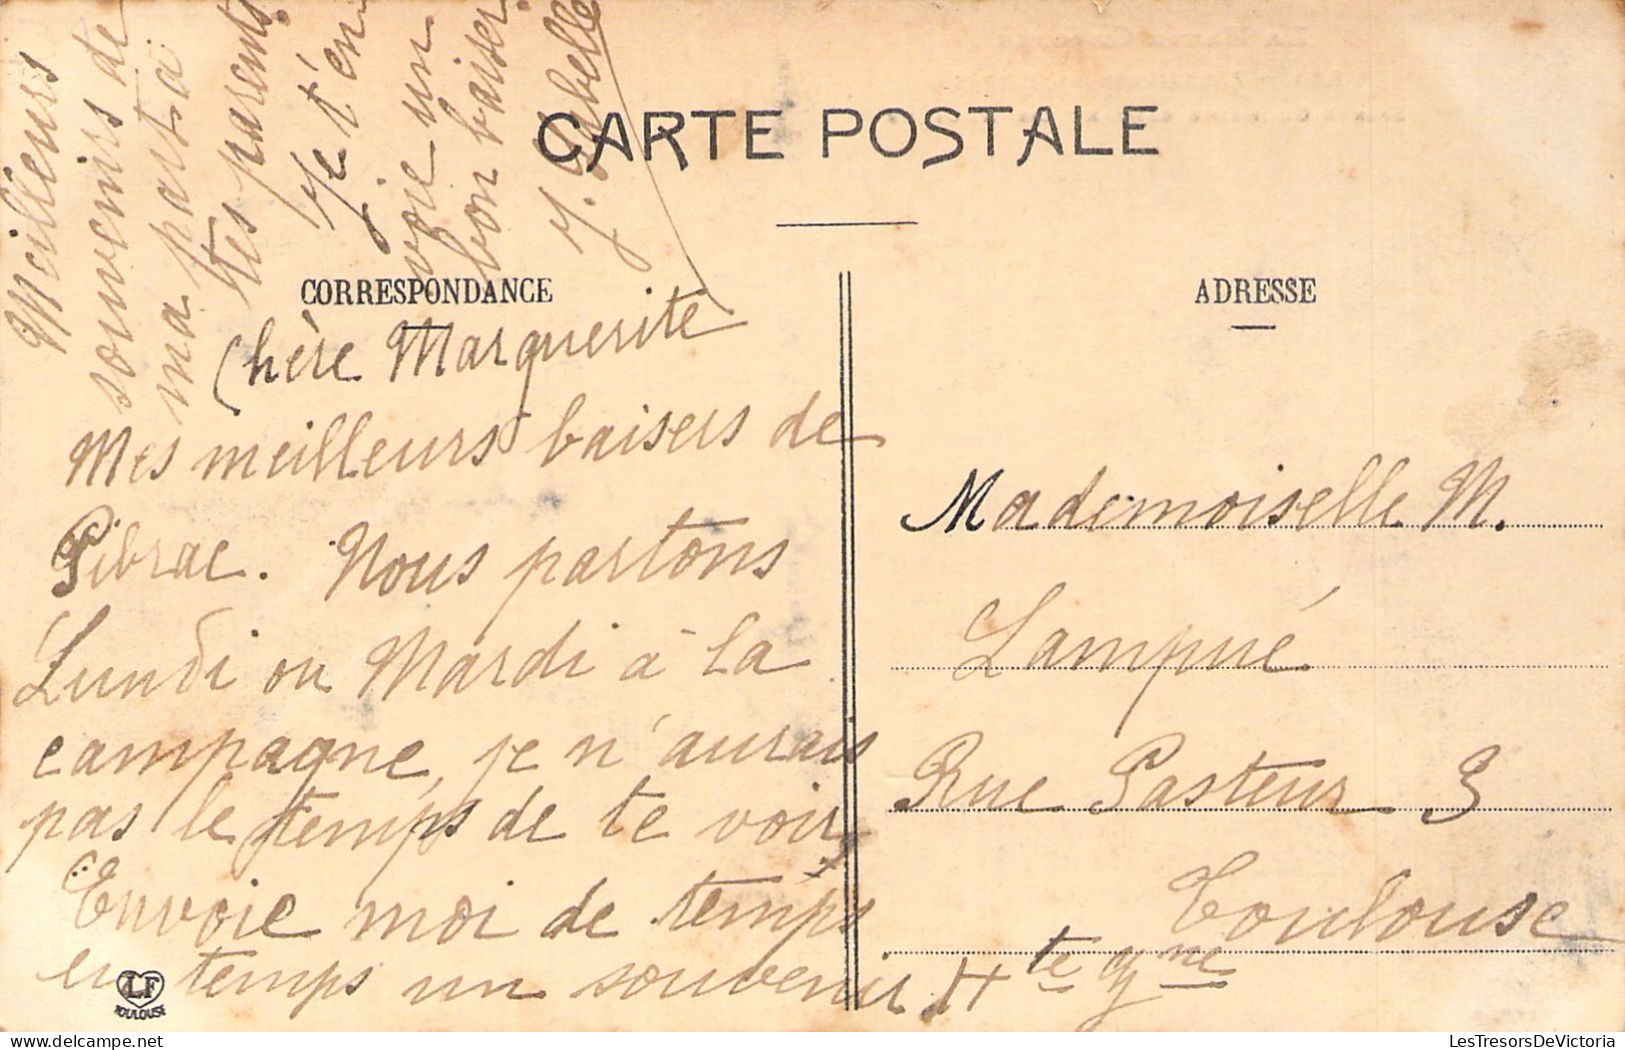 CARTE POSTALE
CORRESPONDANCE
ADRESSE
Chère Marguerite
Mes meilleurs baisers de
Pibrac. Nous partons
Lundi ou Mardi à la
campagne, je n'aurais
pas le temps de te voir
Envoie moi de temps
en temps un souvenir
Meilleurs
souvenirs de
ma part à
tes parents
Je t'en
voie un
bon baiser.
Mademoiselle M.
Lampué
Rue Pasteur 3
Toulouse
Hte Gne
LF
TOULOUSE
LesTresorsDeVictoria